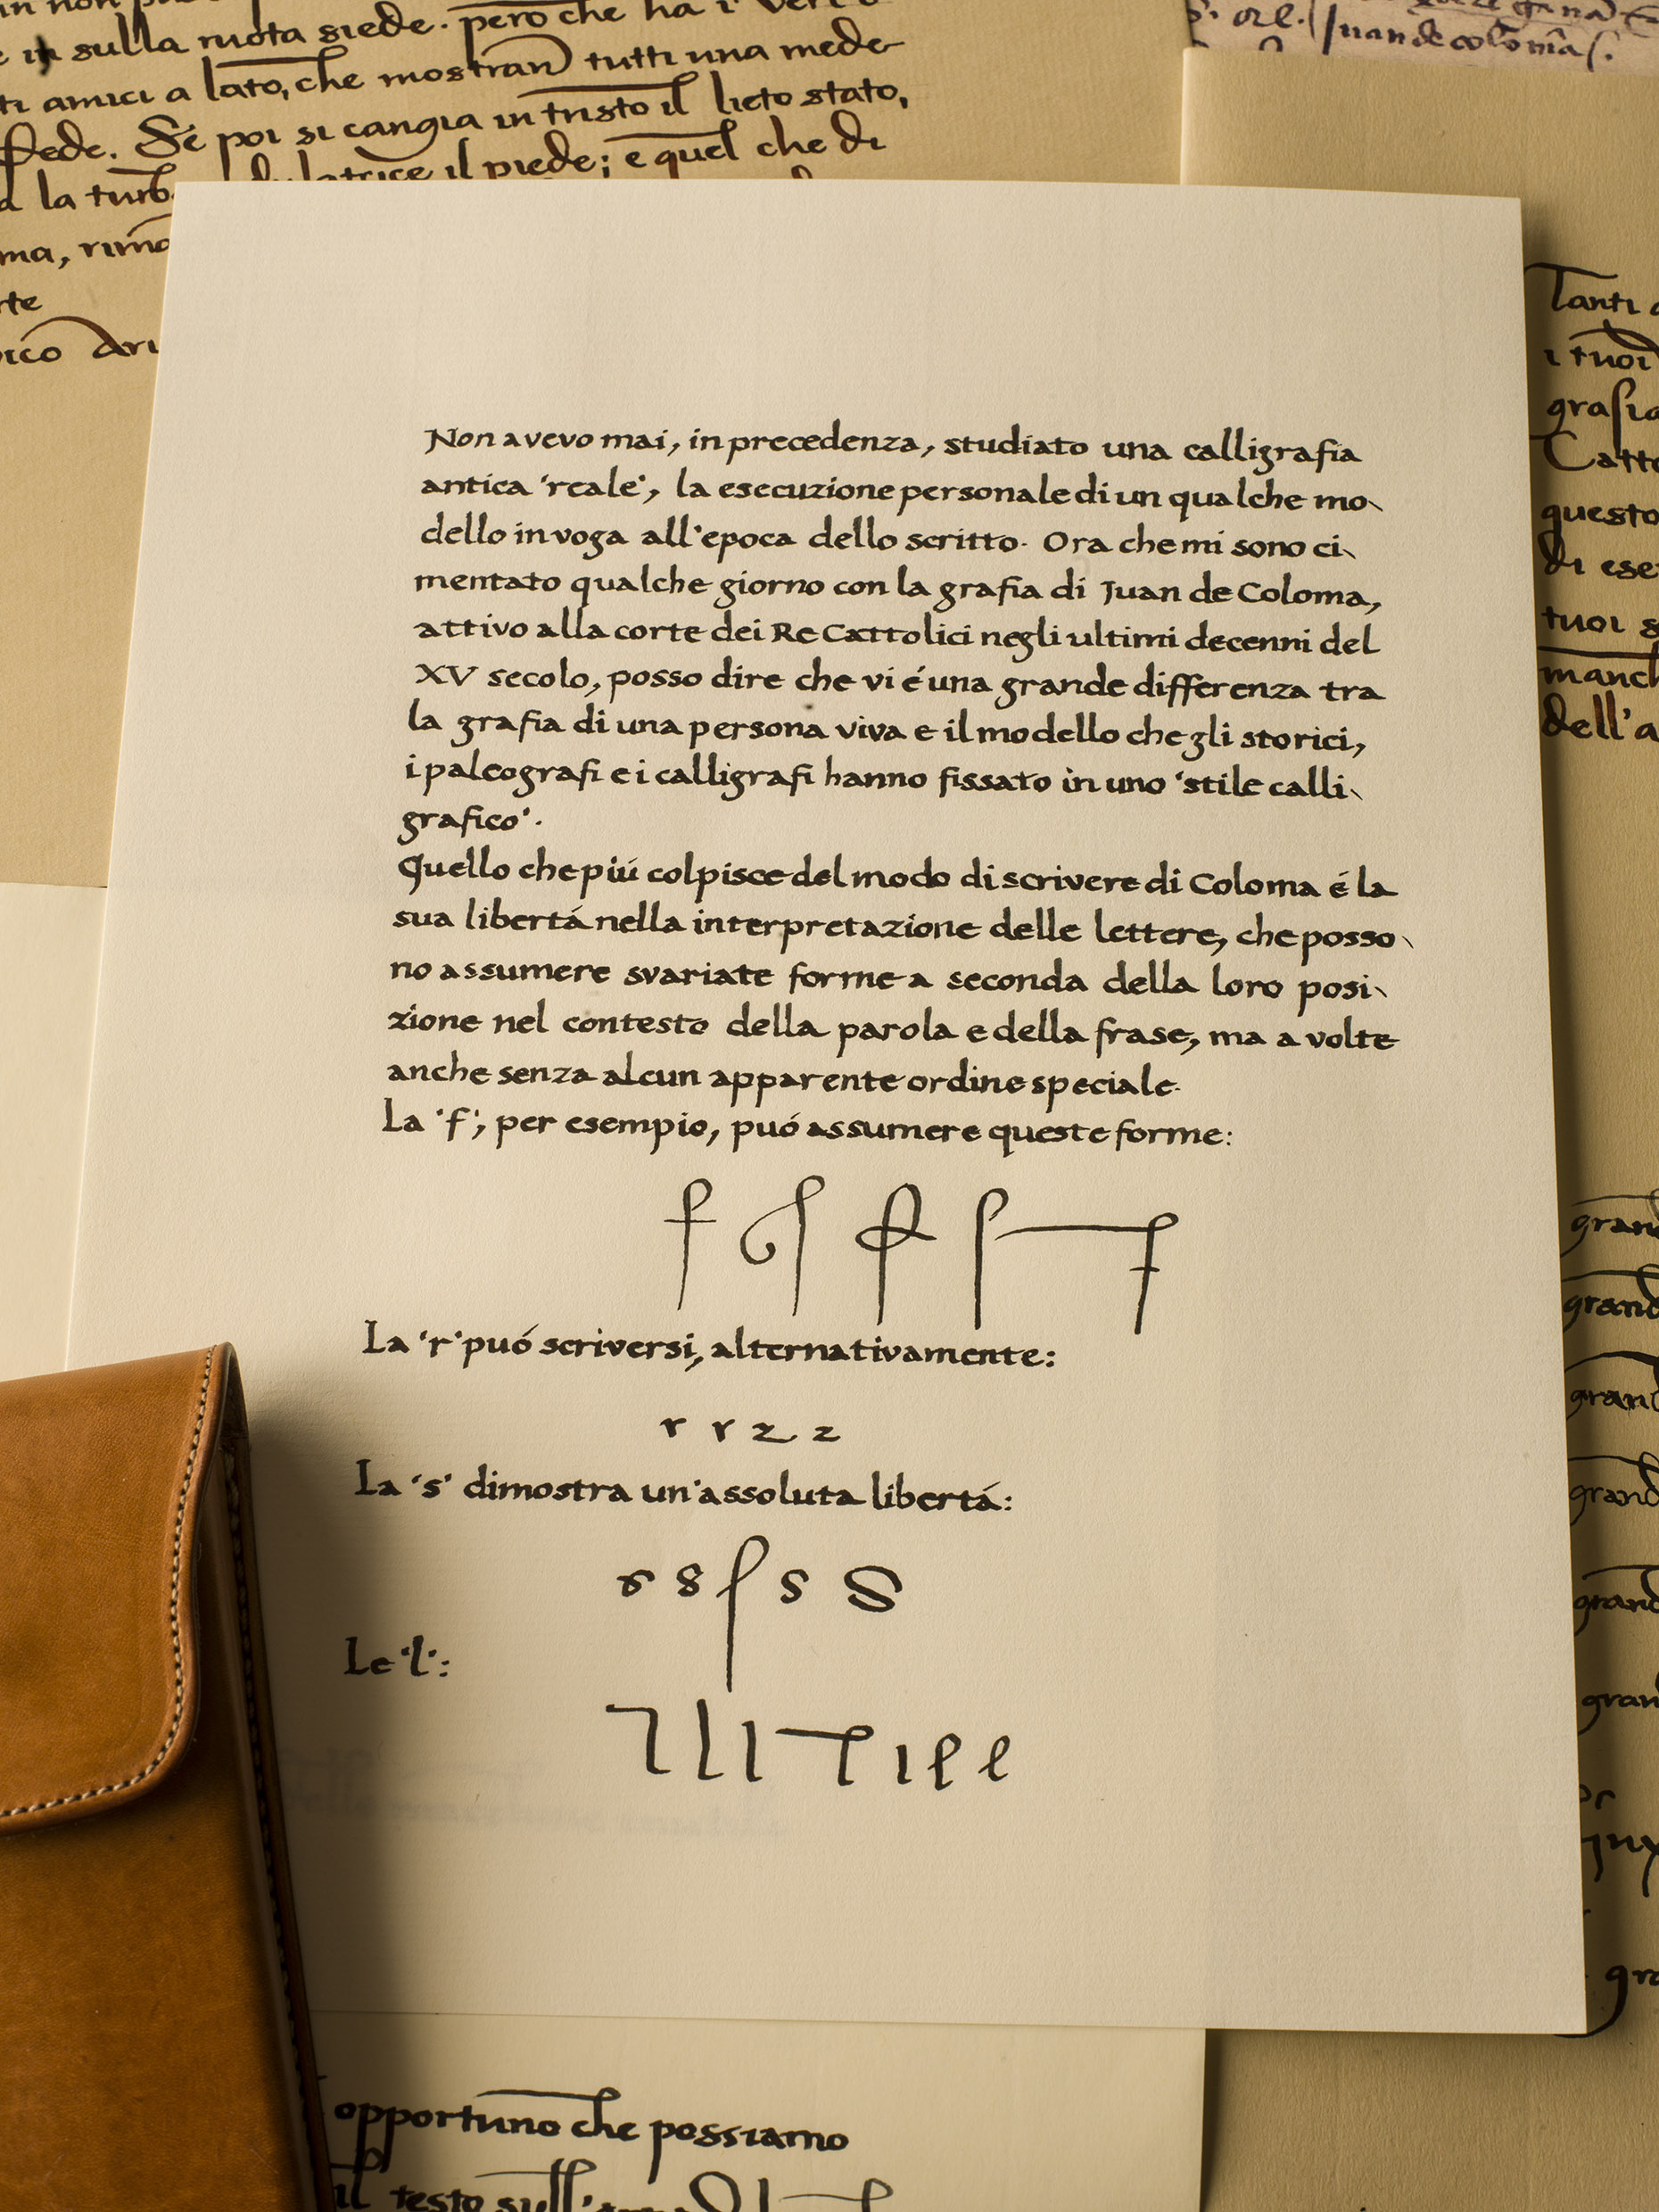 in sulla ruota siede. però che ha i veri
ti amici a lato, che mostran tutti una mede
fede. Se poi si cangia in tristo il lieto stato,
la turb
il piede; e quel che di
ma, rima
rte
Juan de coloma s.
Non avevo mai, in precedenza, studiato una calligrafia
antica 'reale', la esecuzione personale di un qualche mo-
dello in voga all'epoca dello scritto. Ora che mi sono ci-
mentato qualche giorno con la grafia di Juan de Coloma,
attivo alla corte dei Re Cattolici negli ultimi decenni del
XV secolo, posso dire che vi é una grande differenza tra
la grafia di una persona viva e il modello che gli storici,
i paleografi e i calligrafi hanno fissato in uno 'stile calli-
grafico'.
Quello che piú colpisce del modo di scrivere di Coloma é la
sua libertá nella interpretazione delle lettere, che posso-
no assumere svariate forme a seconda della loro posi-
zione nel contesto della parola e della frase, ma a volte
anche senza alcun apparente ordine speciale.
La 'f', per esempio, puó assumere queste forme:
f f f f f
La 'r' puó scriversi, alternativamente:
r r r r
La 's' dimostra un'assoluta libertá:
s s ſ s s
Le 'l':
l l l l l l l
Tanti
i tuoi
grafia
Catto
questo
di ese
tuoi s
manch
dell'a
grand
grand
grand
grand
grand
gran
gra
opportuno che possiamo
il testo sull'